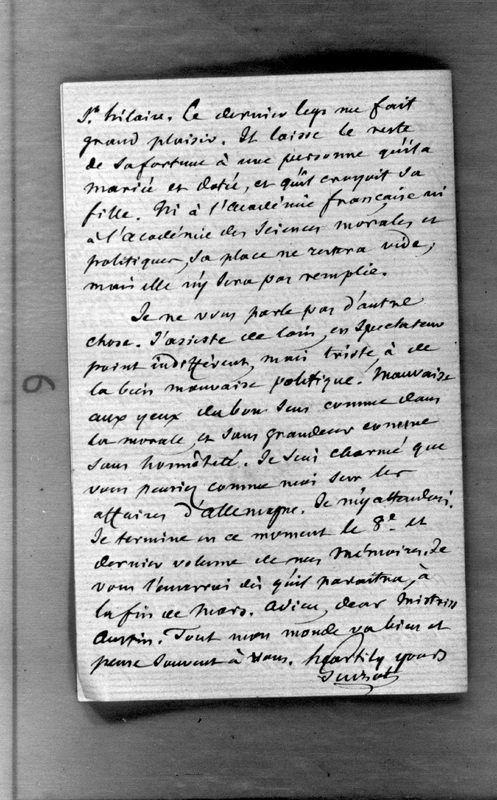 St. hilaire. Ce dernier legs me fait
grand plaisir. Il laisse le reste
de sa fortune à une personne qu'il a
mariée et dotée, et qu'il croyoit sa
fille. Ni à l'Académie française ni
à l'Académie des Sciences morales et
politiques, sa place ne restera vide;
mais elle n'y sera pas remplie.
Je ne vous parle pas d'autre
chose. J'assiste de loin, en Spectateur
point indifférent, mais triste, à de
la bien mauvaise politique. Mauvaise
aux yeux du bon sens comme dans
la morale, et sans grandeur comme
sans honnêteté. Je suis charmé que
vous pensiez comme moi sur les
affaires d'Allemagne. Je m'y attendois.
Je termine en ce moment le 8e et
dernier volume de mes Mémoires. Je
vous l'enverrai dès qu'il paraîtra, à
la fin de mars. Adieu, dear Mistriss
Austin. Tout mon monde va bien et
pense souvent à vous. heartily yours
Guizot
9